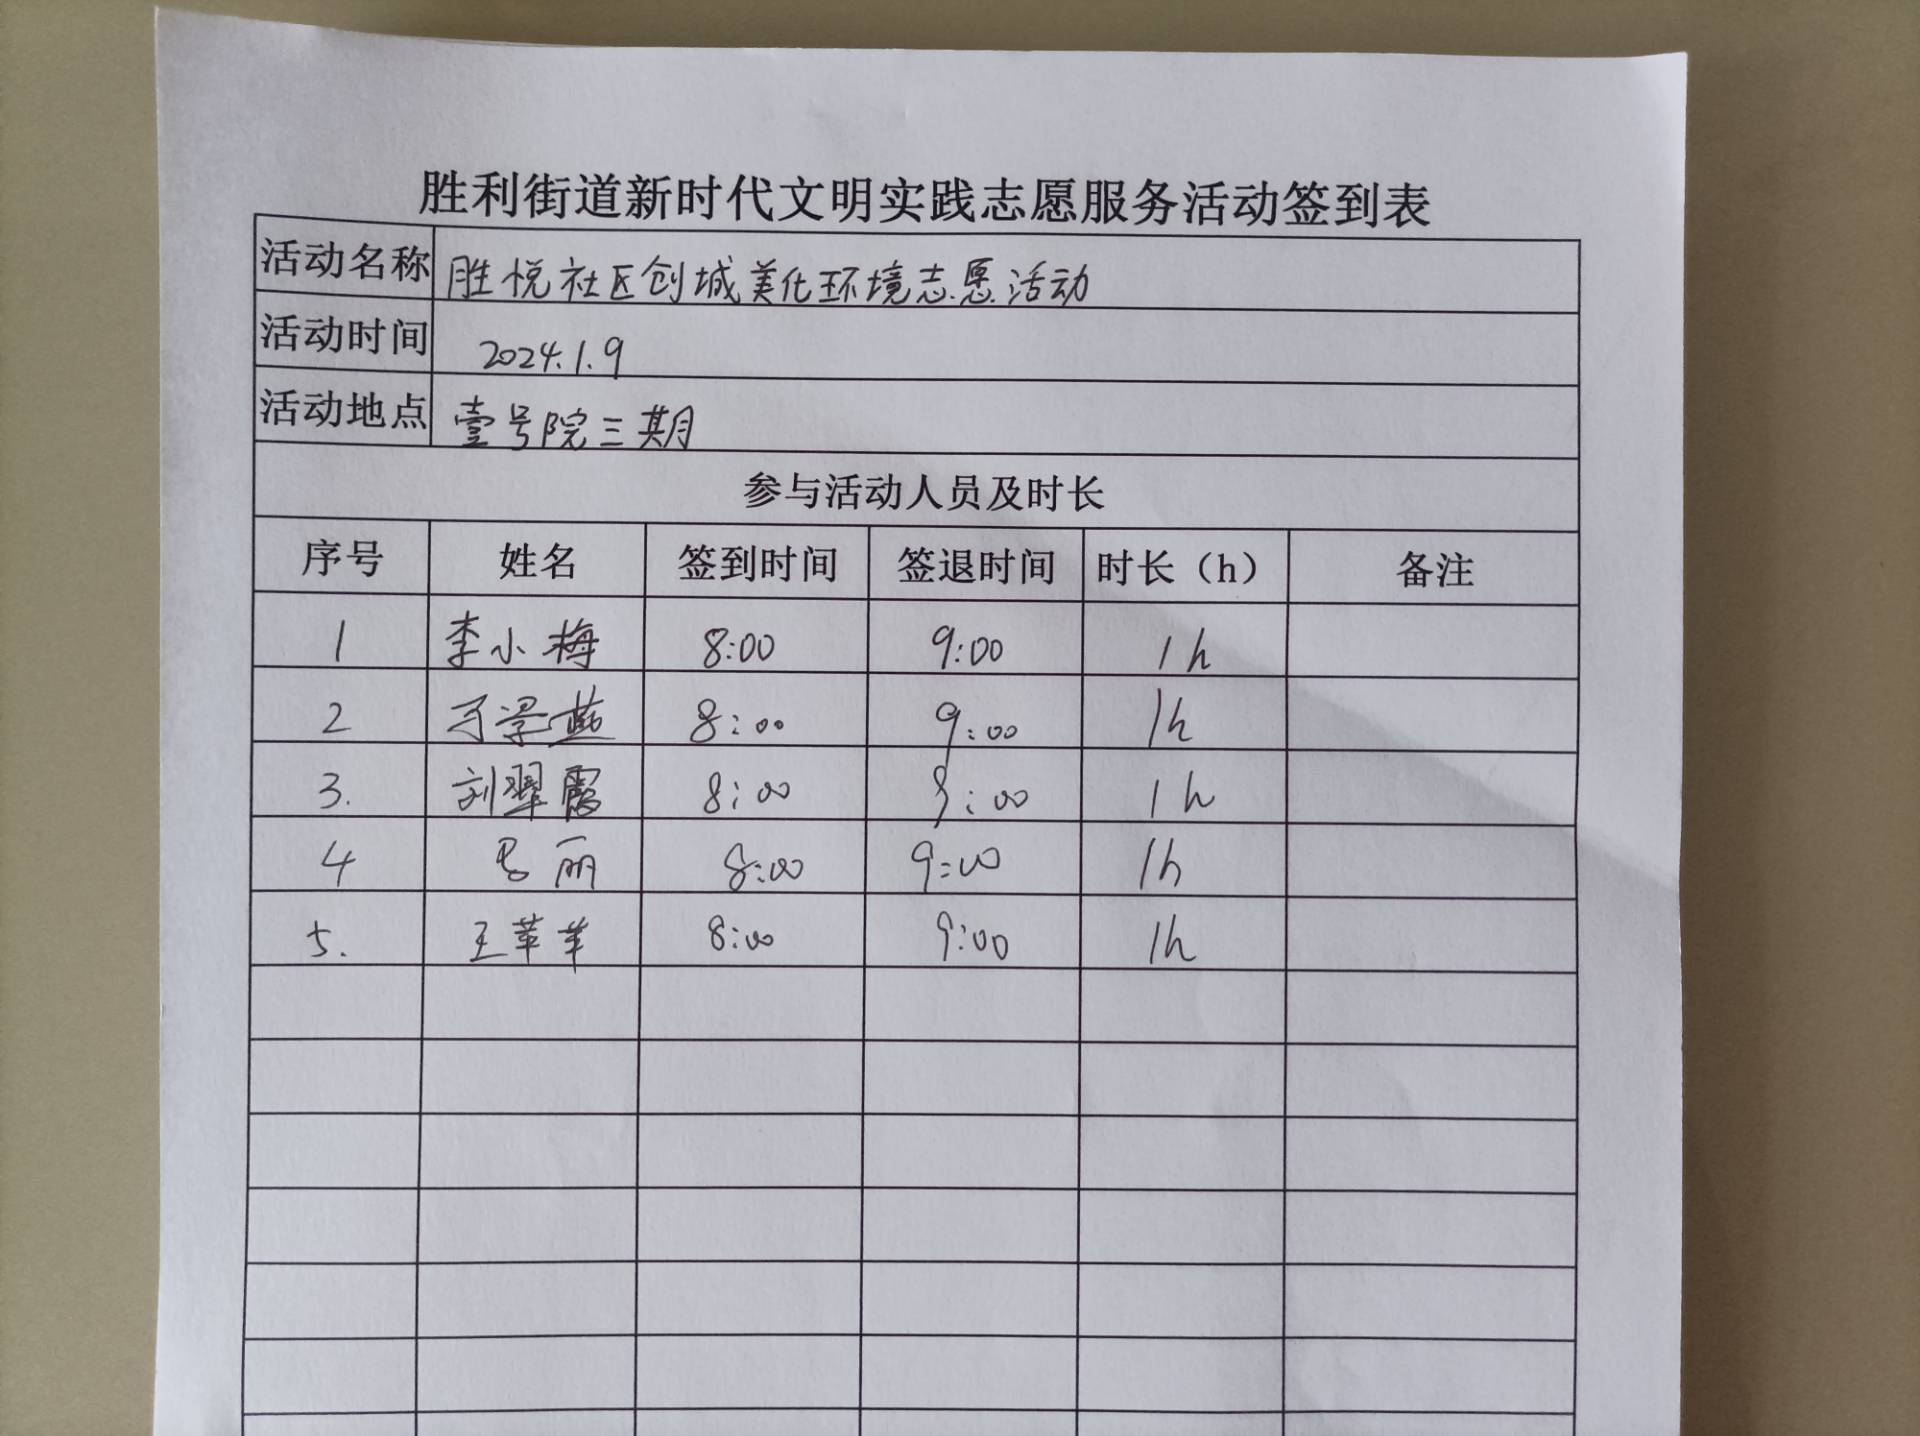 胜利街道新时代文明实践志愿服务活动签到表
活动名称 胜悦社区创城美化环境志愿活动
活动时间 2024.1.9
活动地点 壹号院三期
参与活动人员及时长
序号 姓名 签到时间 签退时间 时长（h） 备注
1 李小梅 8:00 9:00 1h
2 8:00 9:00 1h
3. 刘翠霞 8:00 9:00 1h
4 丽 8:00 9:00 1h
5. 王苹苹 8:00 9:00 1h